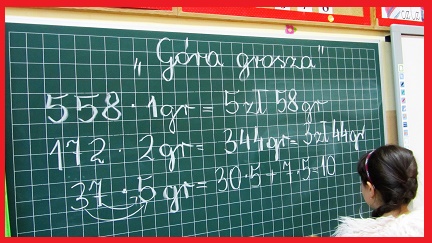 „Góra grosza"
558 · 1gr = 5zł 58gr
172 · 2gr = 344gr = 3zł 44gr
37 · 5gr = 30·5 + 7·5 = 10